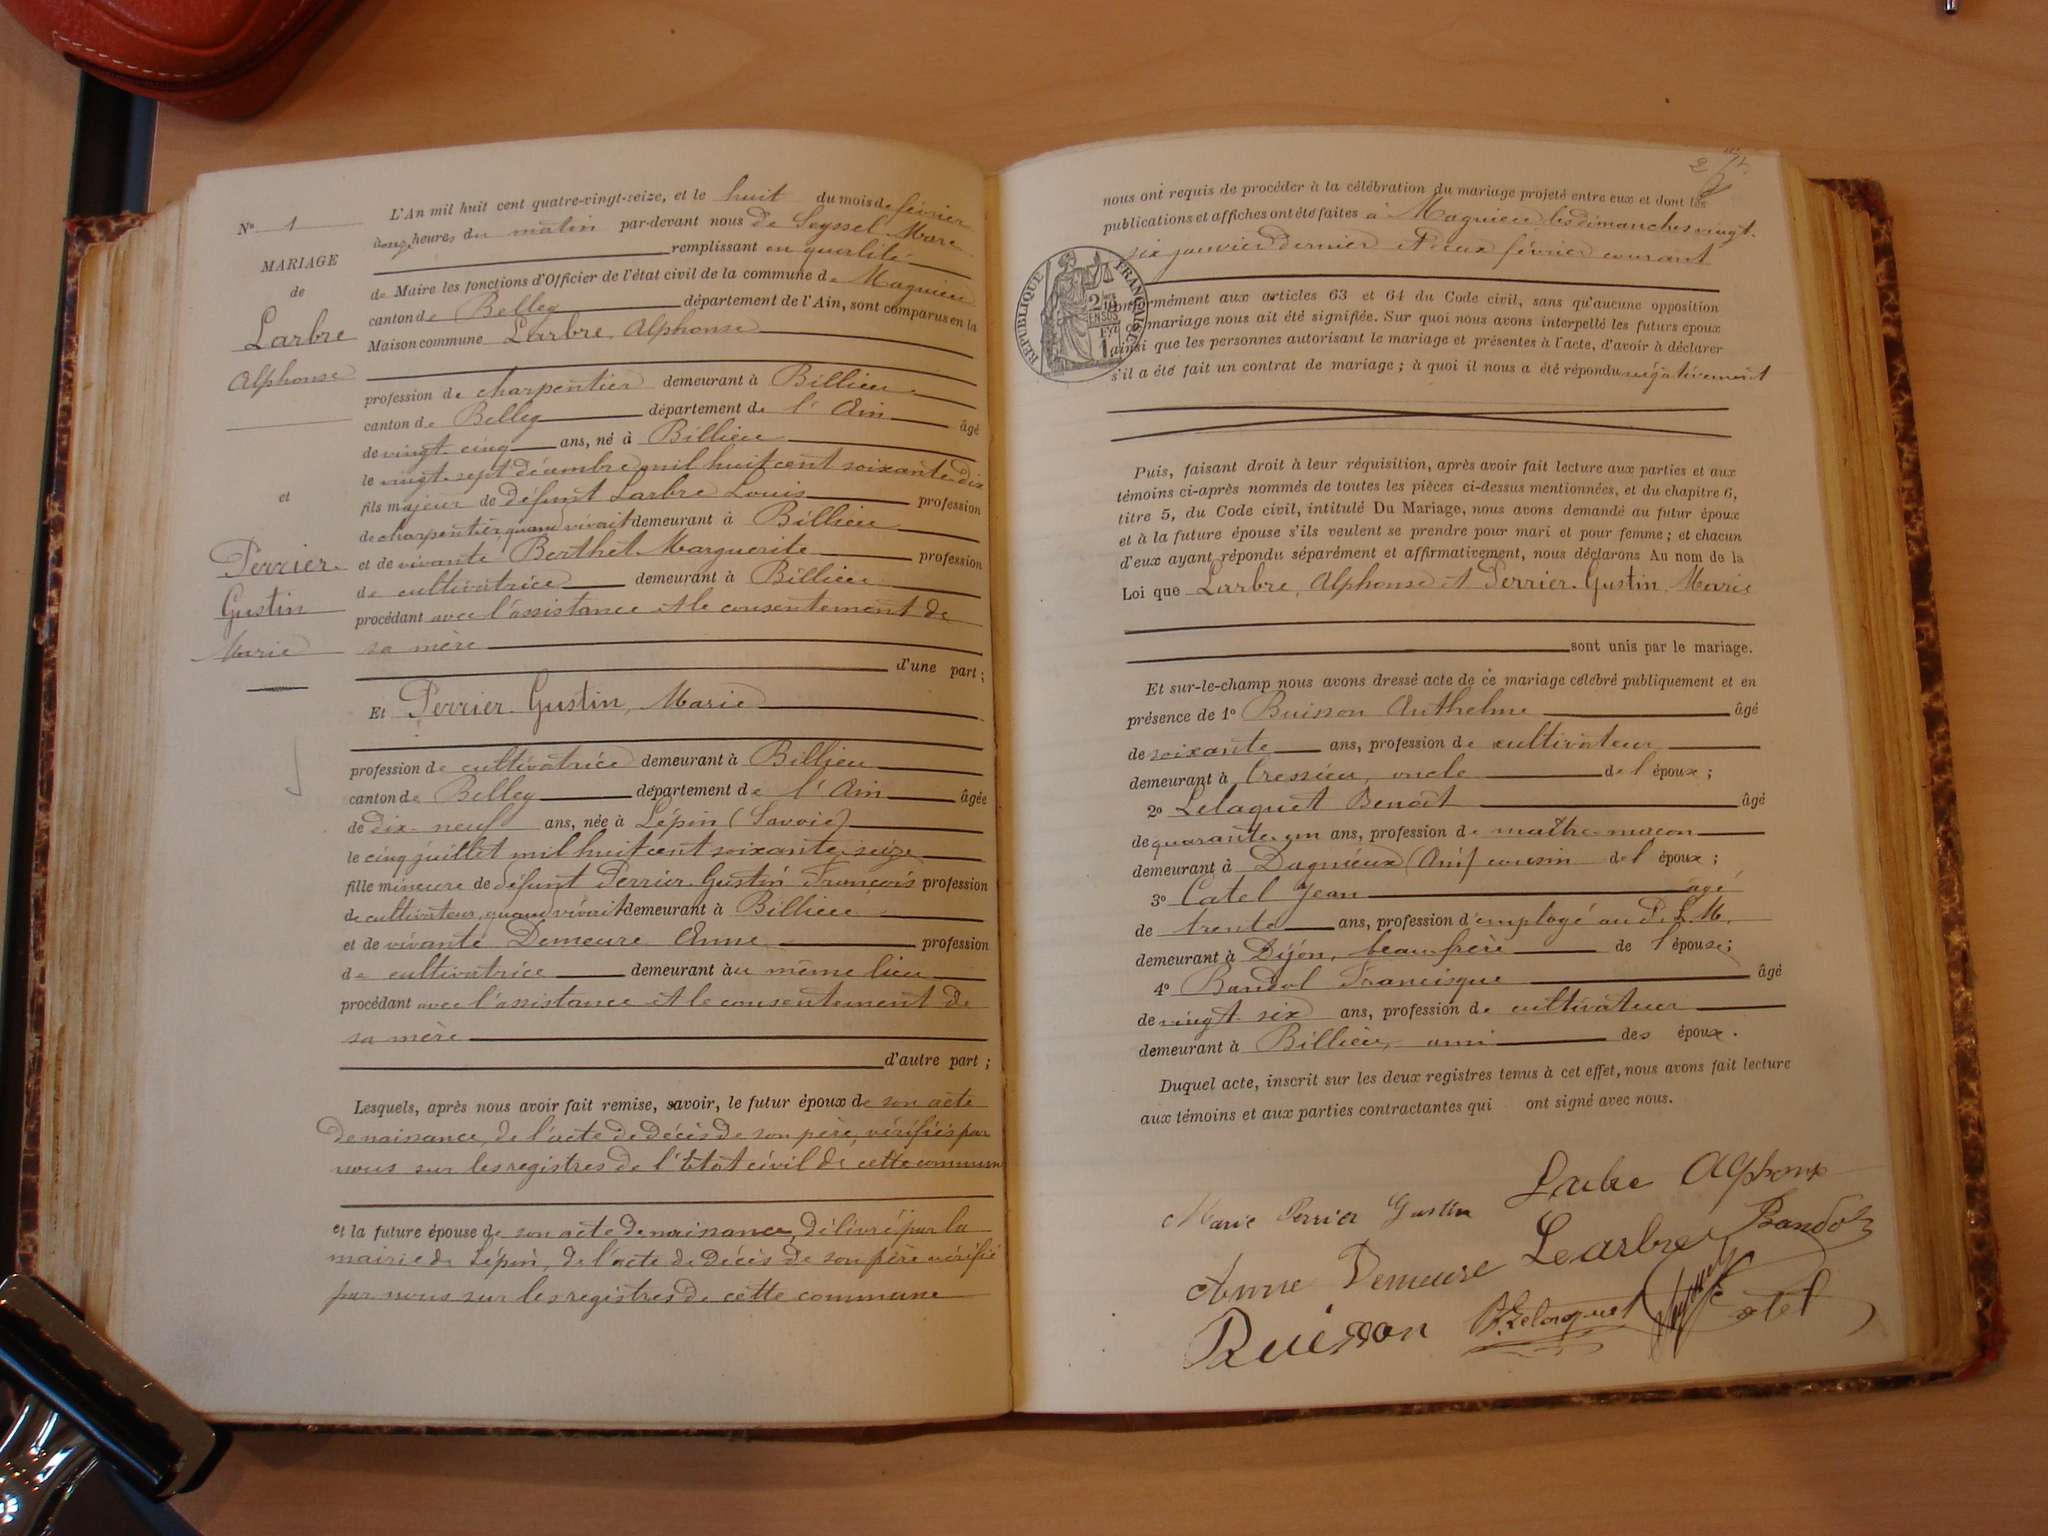 N° 1
MARIAGE
de
Larbre
Alphonse
et
Perrier
Gustin
Marie
L'An mil huit cent quatre-vingt-seize, et le huit du mois de février
heures du matin par-devant nous de Seyssel Marc
remplissant en qualité
de Maire les fonctions d'Officier de l'état civil de la commune de Magnieu
canton de Belley département de l'Ain, sont comparus en la
Maison commune Larbre, Alphonse
profession de charpentier demeurant à Billieu
canton de Belley département de l'Ain âgé
de vingt-cinq ans, né à Billieu
le vingt-sept décembre mil huit cent soixante-dix
fils majeur de défunt Larbre Louis profession
de charpentier quand vivait demeurant à Billieu
et de vivante Berthet Marguerite profession
de cultivatrice demeurant à Billieu
procédant avec l'assistance et le consentement de
sa mère
d'une part;
Et Perrier-Gustin, Marie
profession de cultivatrice demeurant à Billieu
canton de Belley département de l'Ain âgée
de dix-neuf ans, née à Lépin (Savoie)
le cinq juillet mil huit cent soixante-seize
fille mineure de défunt Perrier-Gustin François profession
de cultivateur, quand vivait demeurant à Billieu
et de vivante Demeure Anne profession
de cultivatrice demeurant au même lieu
procédant avec l'assistance et le consentement de
sa mère
d'autre part;
Lesquels, après nous avoir fait remise, savoir, le futur époux de son acte
de naissance, de l'acte de décès de son père, vérifiés par
nous sur les registres de l'état civil de cette commune
et la future épouse de son acte de naissance, délivré par la
mairie de Lépin, de l'acte de décès de son père vérifié
par nous sur les registres de cette commune
nous ont requis de procéder à la célébration du mariage projeté entre eux et dont les
publications et affiches ont été faites à Magnieu, les dimanches vingt-
six janvier dernier et deux février courant
RÉPUBLIQUE FRANÇAISE
conformément aux articles 63 et 64 du Code civil, sans qu'aucune opposition
mariage nous ait été signifiée. Sur quoi nous avons interpellé les futurs époux
ainsi que les personnes autorisant le mariage et présentes à l'acte, d'avoir à déclarer
s'il a été fait un contrat de mariage; à quoi il nous a été répondu négativement
Puis, faisant droit à leur réquisition, après avoir fait lecture aux parties et aux
témoins ci-après nommés de toutes les pièces ci-dessus mentionnées, et du chapitre 6,
titre 5, du Code civil, intitulé Du Mariage, nous avons demandé au futur époux
et à la future épouse s'ils veulent se prendre pour mari et pour femme; et chacun
d'eux ayant répondu séparément et affirmativement, nous déclarons Au nom de la
Loi que Larbre, Alphonse et Perrier-Gustin, Marie
sont unis par le mariage.
Et sur-le-champ nous avons dressé acte de ce mariage célébré publiquement et en
présence de 1° Buisson Anthelme âgé
de soixante ans, profession de cultivateur
demeurant à Cressieu, oncle de l'époux;
2° Lelaquet Benoît âgé
de quarante-un ans, profession de maître-maçon
demeurant à Dagnieux (Ain) cousin de l'époux;
3° Catel Jean âgé
de trente ans, profession d'employé au P.L.M.
demeurant à Dijon, beau-frère de l'épouse;
4° Bandol Francisque âgé
de vingt-six ans, profession de cultivateur
demeurant à Billieu, ami des époux.
Duquel acte, inscrit sur les deux registres tenus à cet effet, nous avons fait lecture
aux témoins et aux parties contractantes qui ont signé avec nous.
Marie Perrier Gustin Larbre Alphonse
Anne Demeure Learbre Bandol
Buisson B. Lelaquet Catel